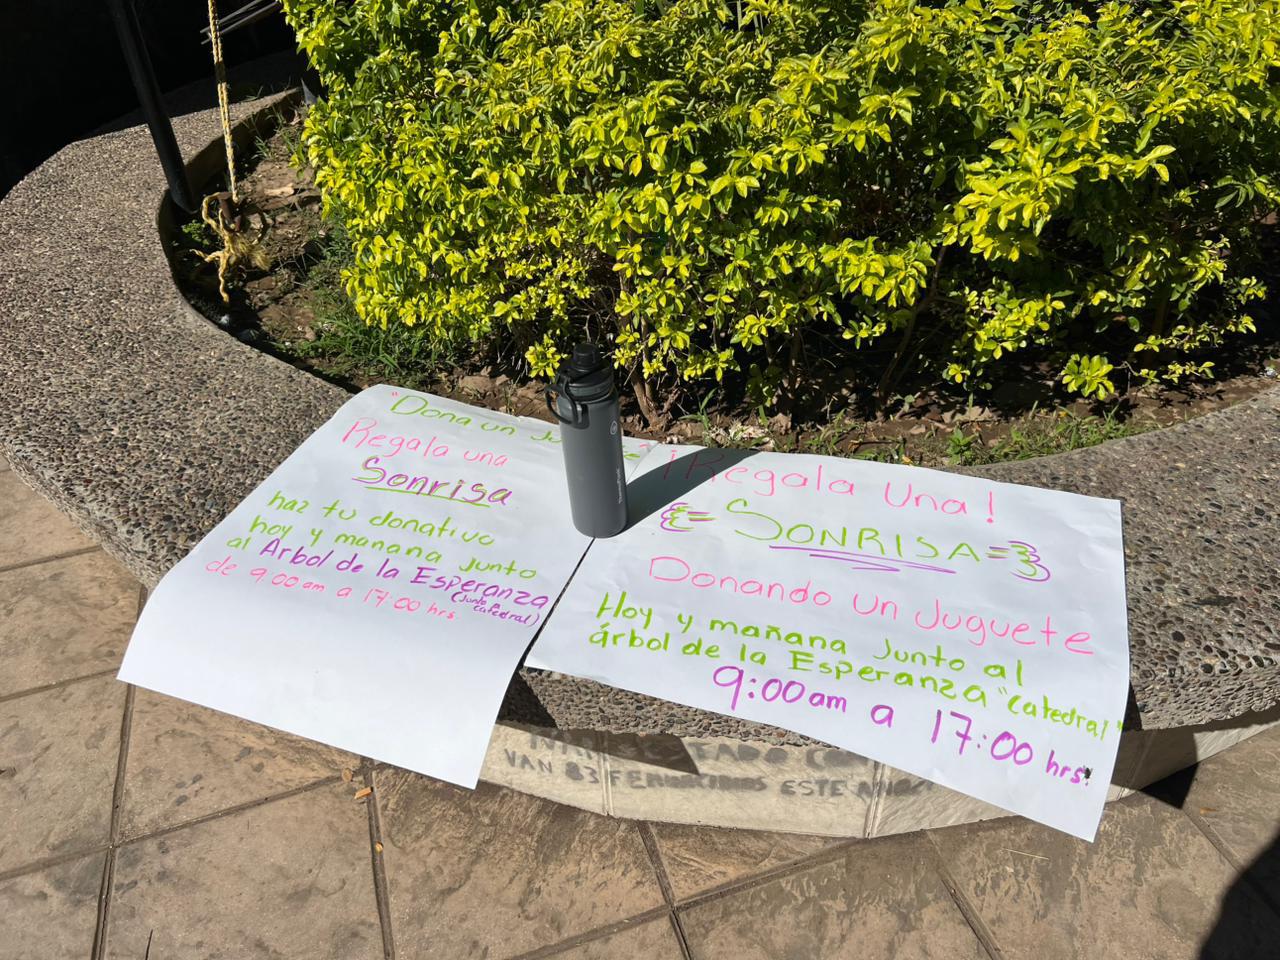 "Dona un
Regala una
Sonrisa
haz tu donativo
hoy y mañana junto
al Arbol de la Esperanza
(junto a
catedral)
de 9:00 am a 17:00 hrs.
¡Regala Una!
SONRISA
Donando Un Juguete
Hoy y mañana Junto al
árbol de la Esperanza "Catedral"
9:00am a 17:00 hrs.
VAN 83 FEMINICIDIOS ESTE AÑO